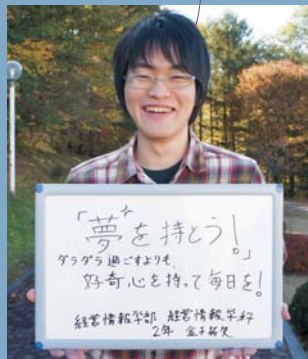 「夢を持とう!」
ダラダラ過ごすよりも、
好奇心を持って毎日を!
経営情報学部 経営情報学科
2年 金子拓矢